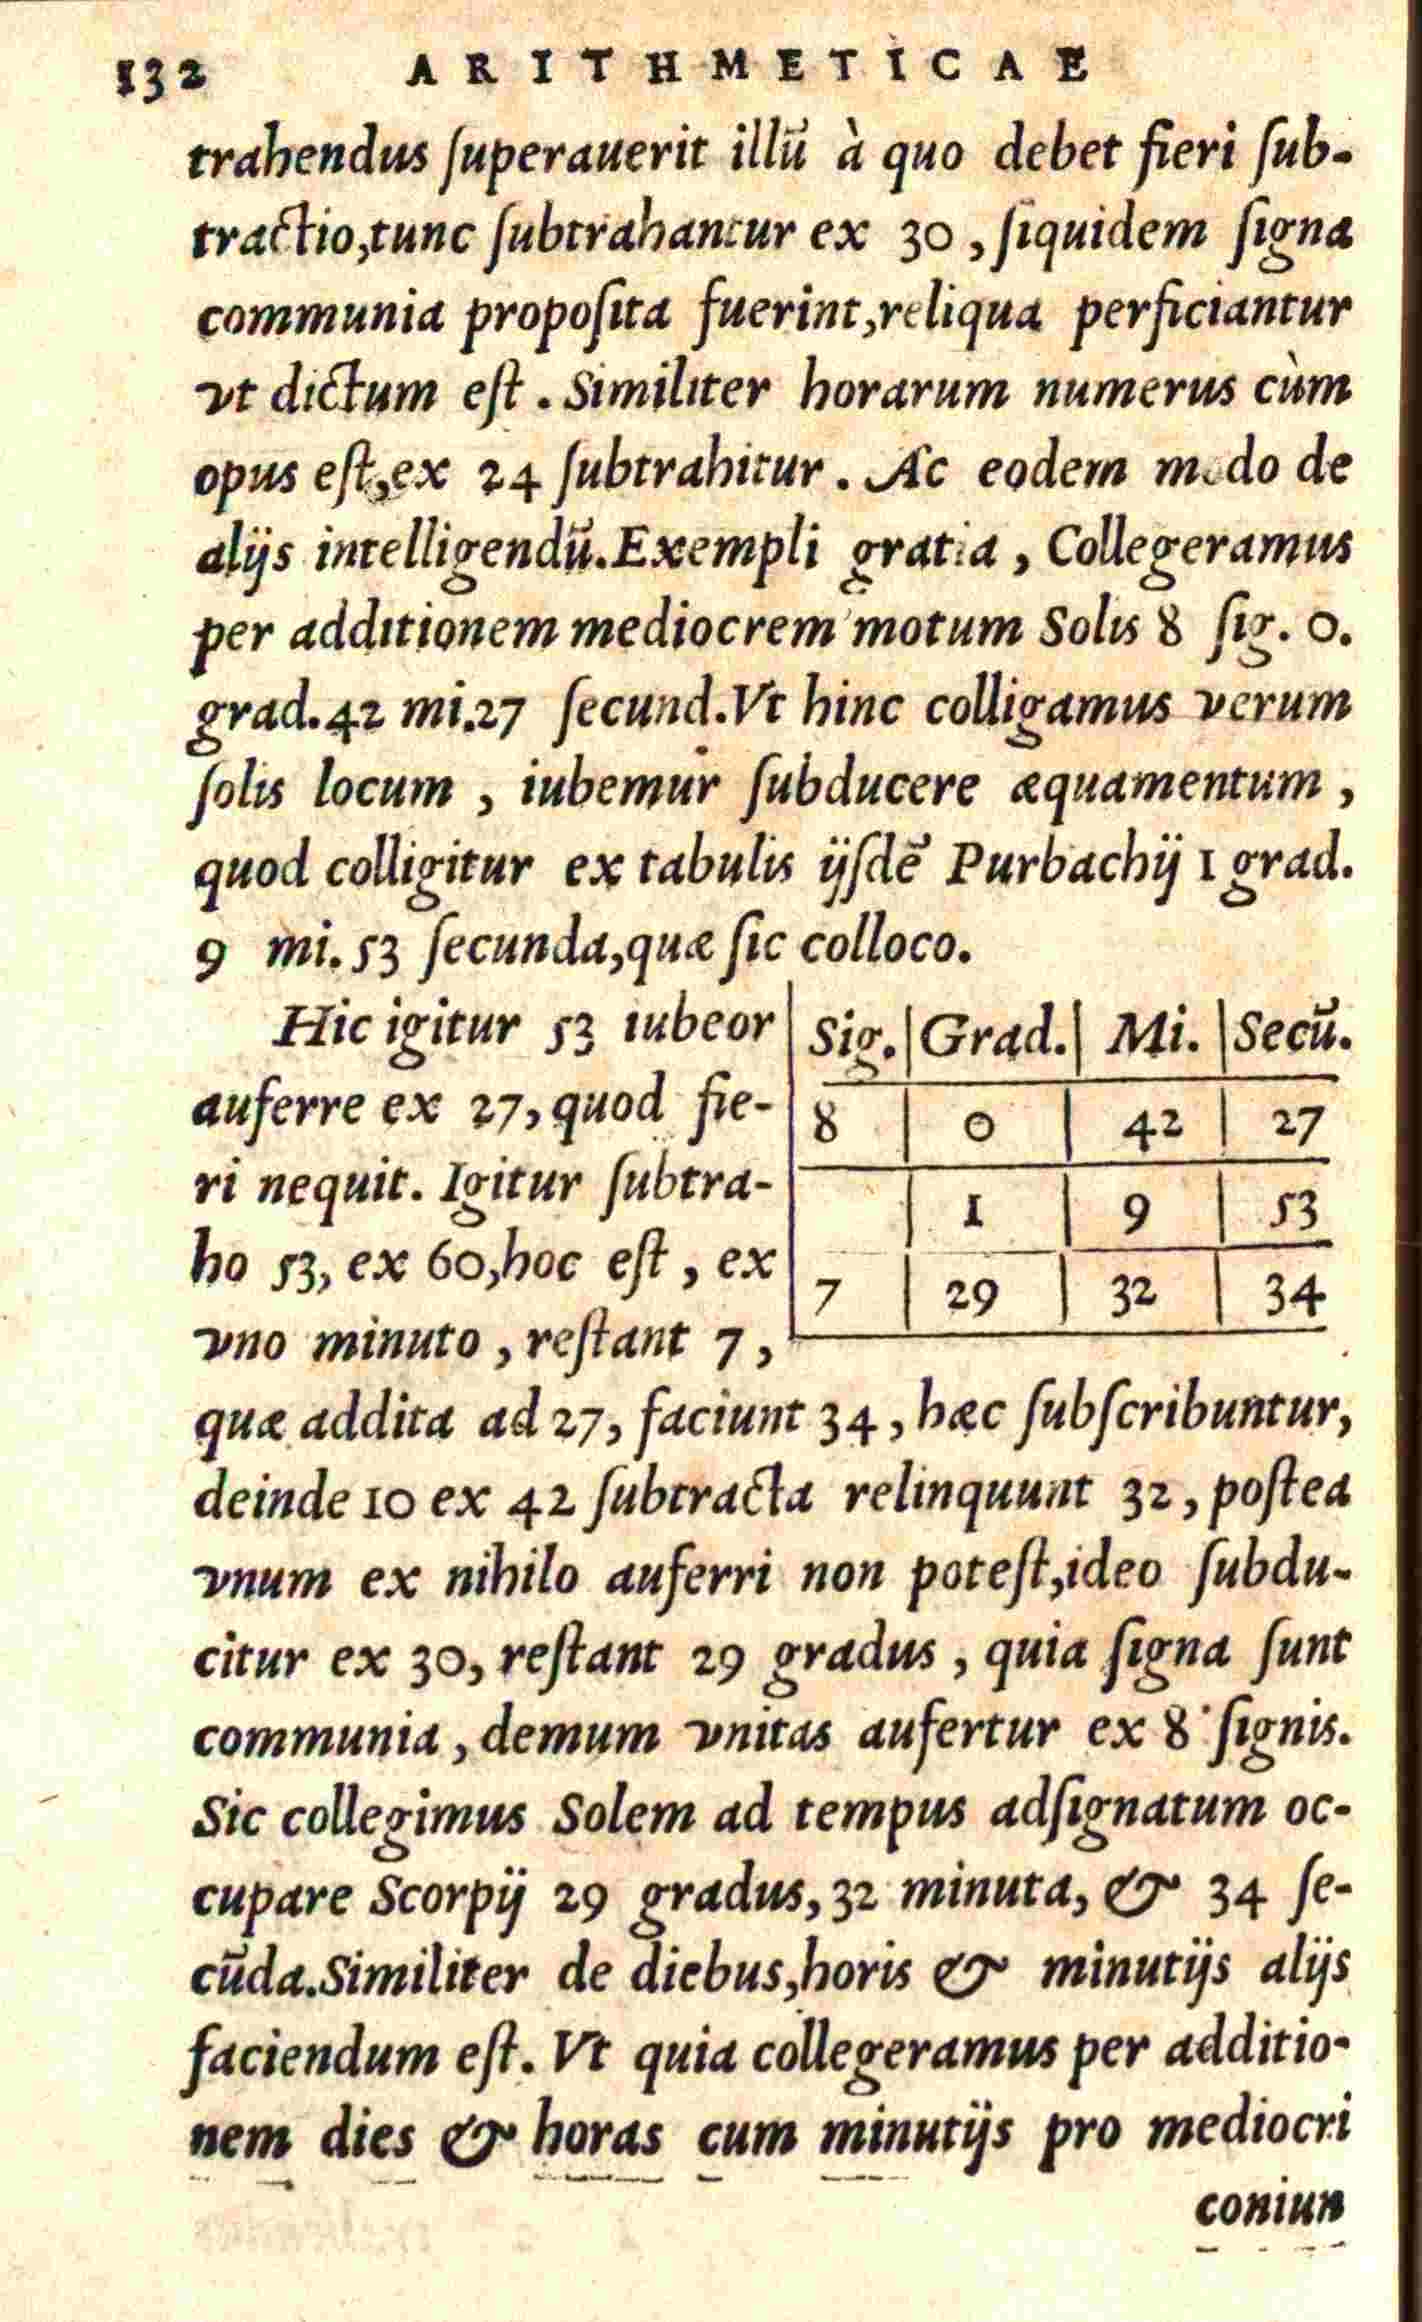 132 ARITHMETICAE
trahendus ſuperauerit illũ à quo debet fieri ſub-
tractio,tunc ſubtrahantur ex 30 , ſiquidem ſigna
communia propoſita fuerint,reliqua perficiantur
vt dictum eſt . Similiter horarum numerus cùm
opus eſt,ex 24 ſubtrahitur . Ac eodem modo de
alijs intelligendũ.Exempli gratia , Collegeramus
per additionem mediocrem motum Solis 8 ſig. 0.
grad.42 mi.27 ſecund.Vt hinc colligamus verum
ſolis locum , iubemur ſubducere æquamentum ,
quod colligitur ex tabulis ijſdẽ Purbachij 1 grad.
9 mi. 53 ſecunda,quæ ſic colloco.
Hic igitur 53 iubeor
auferre ex 27, quod fie-
ri nequit. Igitur ſubtra-
ho 53, ex 60,hoc eſt , ex
vno minuto , reſtant 7 ,
Sig. Grad. Mi. Secũ.
8 0 42 27
1 9 53
7 29 32 34
quæ addita ad 27, faciunt 34 , hæc ſubſcribuntur,
deinde 10 ex 42 ſubtracta relinquunt 32 , poſtea
vnum ex nihilo auferri non poteſt,ideo ſubdu-
citur ex 30, reſtant 29 gradus , quia ſigna ſunt
communia , demum vnitas aufertur ex 8 ſignis.
Sic collegimus Solem ad tempus adſignatum oc-
cupare Scorpij 29 gradus, 32 minuta, & 34 ſe-
cũda.Similiter de diebus,horis & minutijs alijs
faciendum eſt. Vt quia collegeramus per additio-
nem dies & horas cum minutijs pro mediocri
coniun